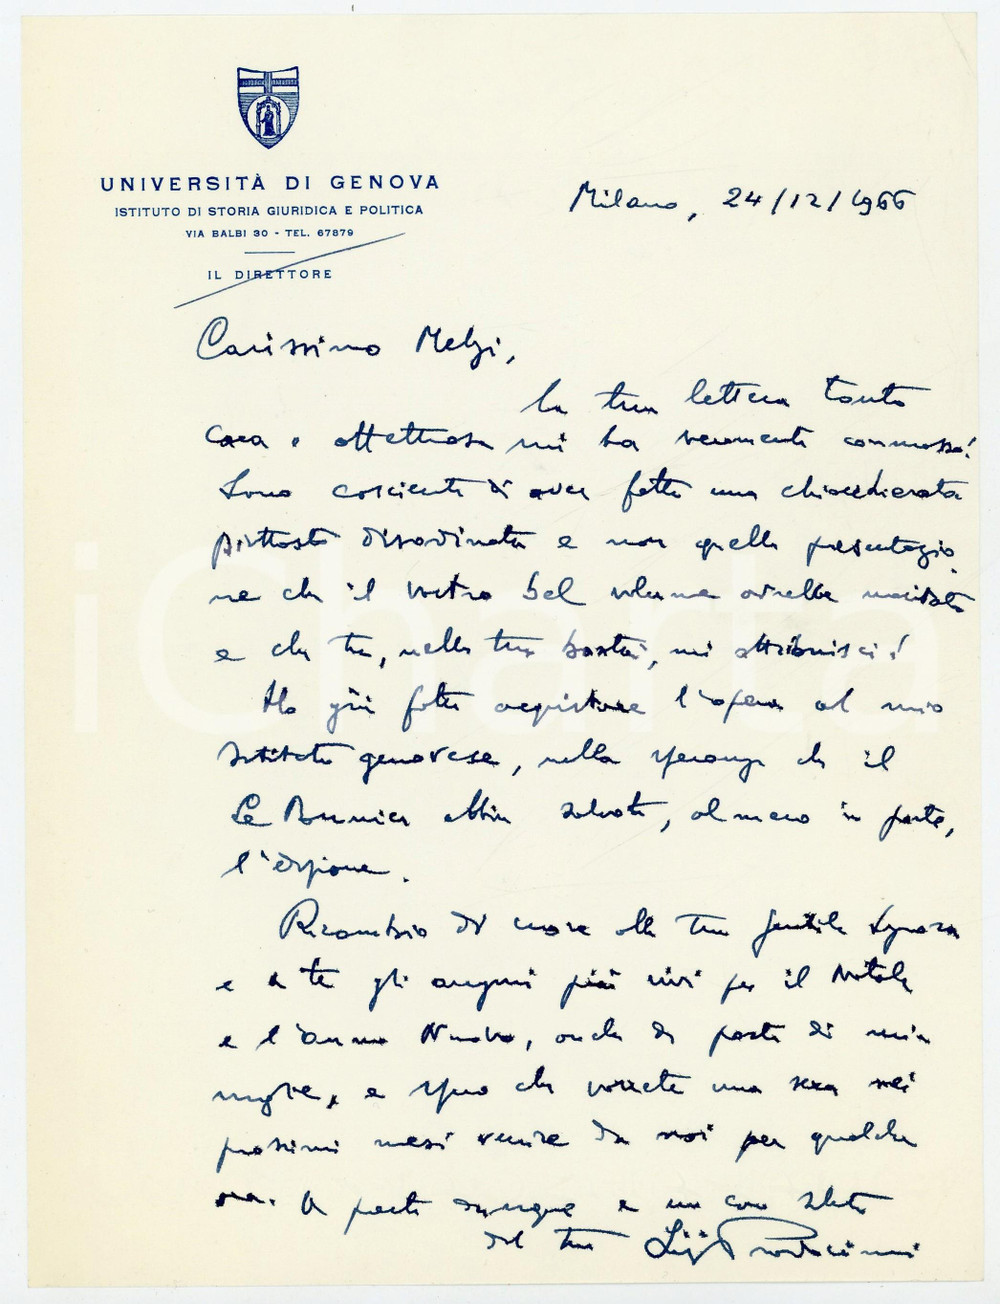 UNIVERSITÀ DI GENOVA
ISTITUTO DI STORIA GIURIDICA E POLITICA
VIA BALBI 30 - TEL. 67879
IL DIRETTORE
Milano, 24/12/1966
Carissimo Melzi,
la tua lettera tanto
cara e affettuosa mi ha veramente commosso!
Sono cosciente di aver fatto una chiacchierata
piuttosto disordinata e non quella presentazio-
ne che il vostro bel volume avrebbe meritato
e che tu, nella tua bontà, mi attribuisci!
Ho già fatto acquistare l'opera al mio
Istituto genovese, nella speranza che il
Le Monnier abbia salvato, almeno in parte,
l'edizione.
Ricambio di cuore alla tua gentile Signora
e a te gli auguri più vivi per il Natale
e l'Anno Nuovo, anche da parte di mia
moglie, e spero che vorrete una sera nei
prossimi mesi venire da noi per qualche
ora. A presto dunque e un caro saluto
dal tuo Luigi Prosdocimi
iCharta